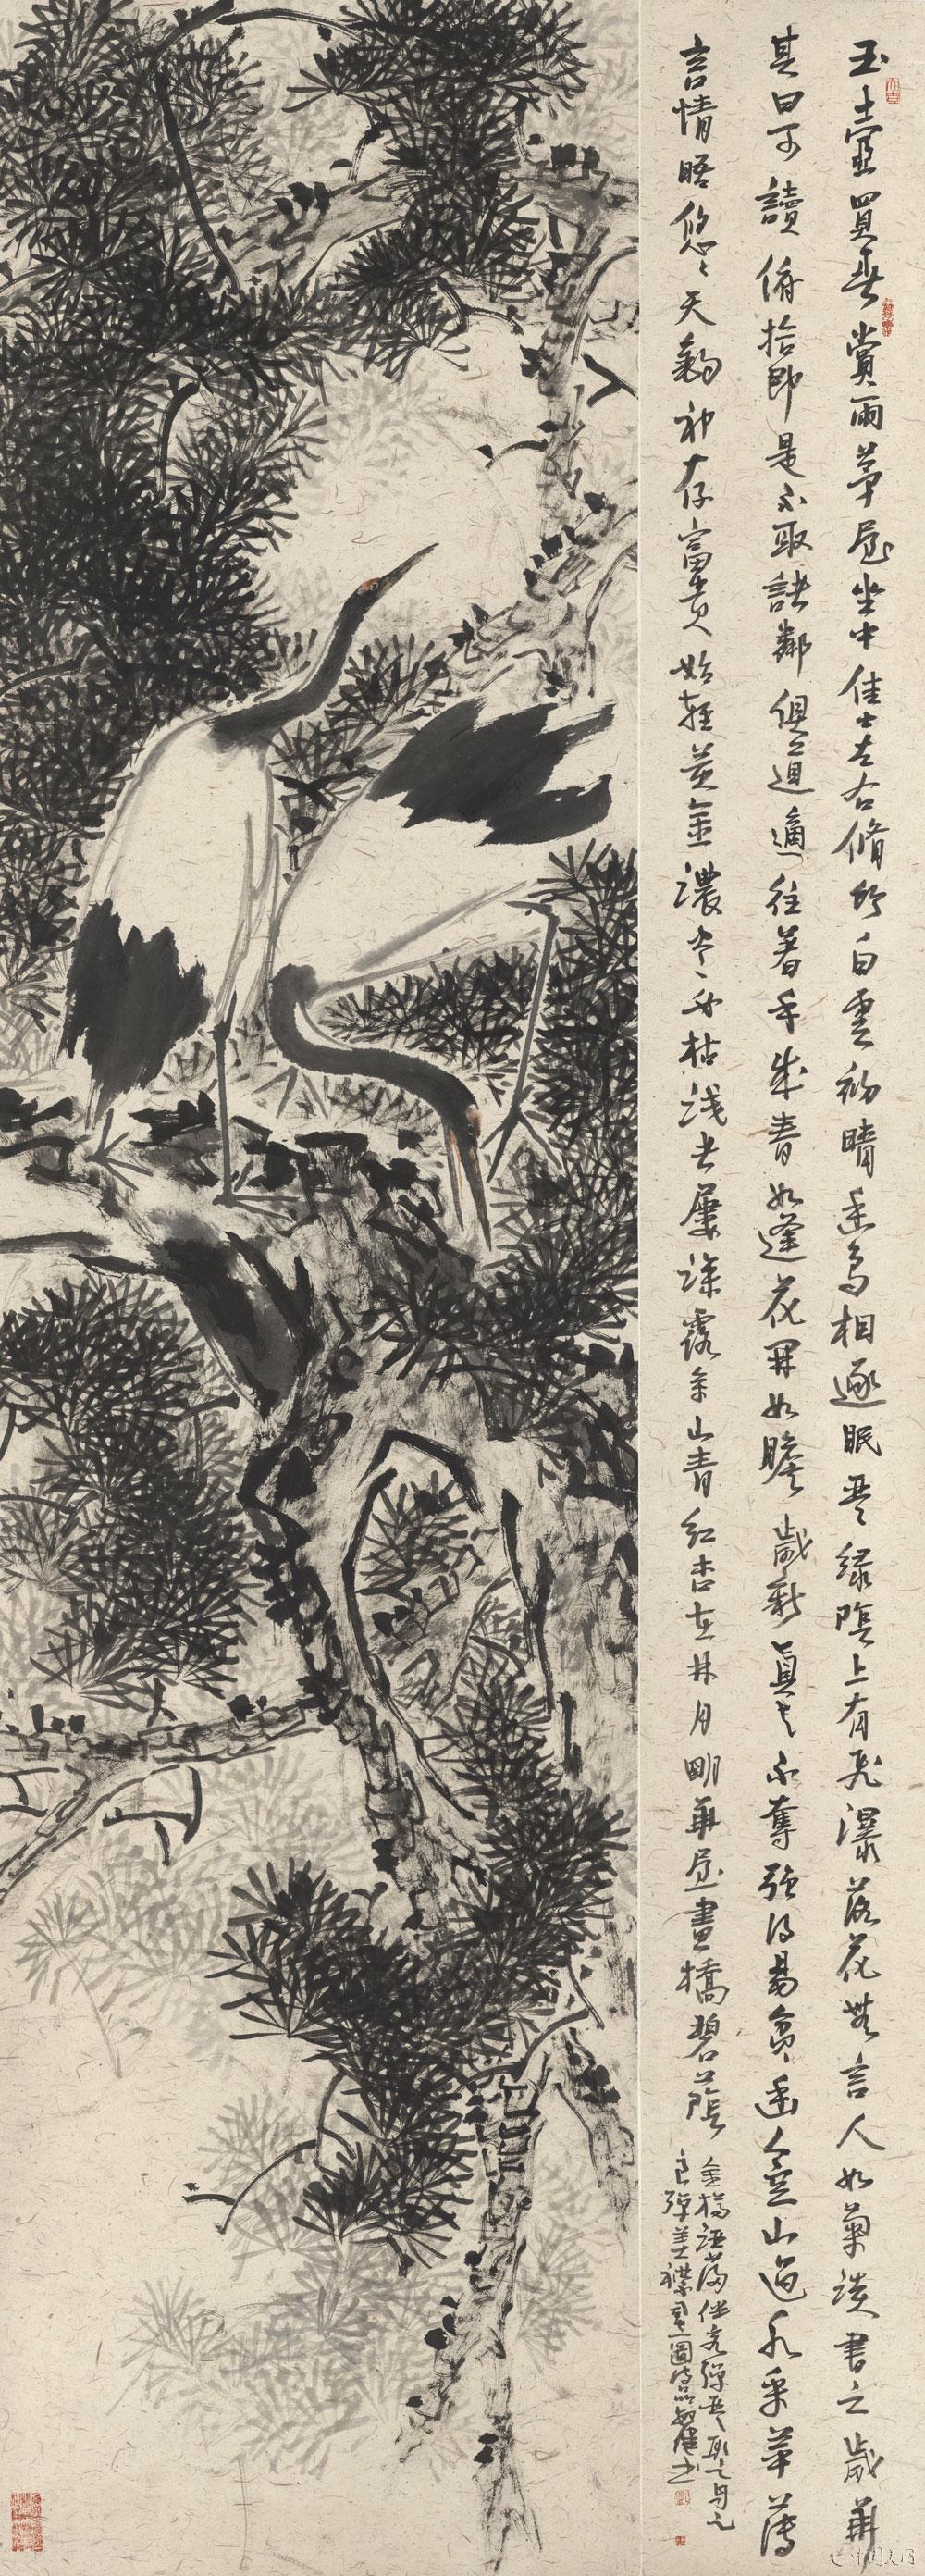 玉壺買春賞雨茅屋坐中佳士左右脩竹白雲初晴幽鳥相逐眠琴綠陰上有飛瀑落花無言人如菊淡書之歲華
其曰可讀俯拾即是不取諸鄰俱道適往著手成春如逢花開如瞻歲新真與不奪強得易貧幽人空山過水采苹薄
言情晤悠悠天鈞神存富貴始輕黃金濃盡必枯淺者屢深露余山青紅杏在林月明華屋畫橋碧陰
金樽酒滿伴客彈琴取之自足
良殫美襟司空圖詩品